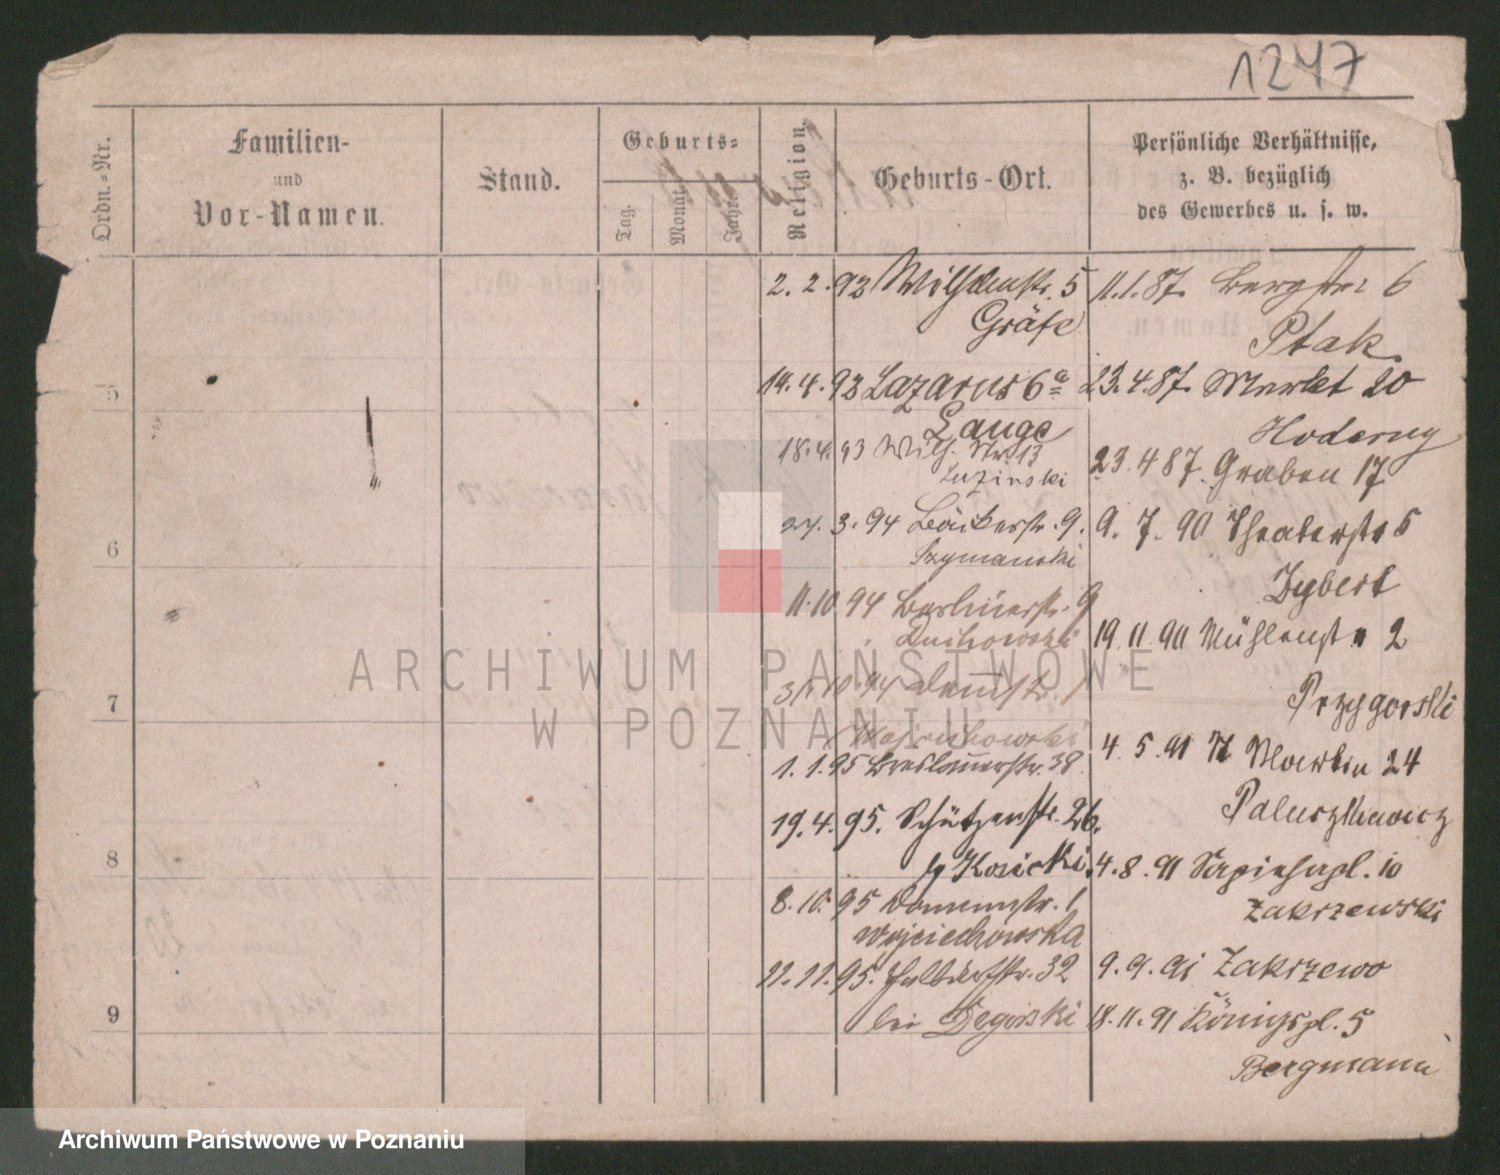 1247
Ordn.-Nr.
Familien-
und
Vor-Namen.
Stand.
Geburts-
Tag.
Monat.
Jahr.
Religion.
Geburts-Ort.
Persönliche Verhältnisse,
z. B. bezüglich
des Gewerbes u. s. w.
5
6
7
8
9
2. 2. 93 Wilhelmstr. 5
Gräfe
19. 4. 93 Lazarus 6a
Lange
18. 4. 93 Wilh. Str. 13
Luzinski
27. 3. 94 Bäckerstr. 9.
Szymanski
11. 10. 94 Berlinerstr. 9
Duchowski
10. 94 Domstr. 1
Wojciechowski
1. 1. 95 Breslauerstr. 38
19. 4. 95. Schützenstr. 26.
b/ Kosicki
8. 10. 95 Dominstr. 1
Wojciechowska
11. 11. 95. Halbdorfstr. 32
bei Degorski
11. 1. 87. Bergstr 6
Ptak
23. 4. 87. Markt 20
Hoderny
23. 4 87. Graben 17
9. 7. 90 Theaterstr 5
Dybert
19. 11. 90 Mühlenstr 2
Przygorski
4. 5. 91 St Martin 24
Paluszkiewicz
4. 8. 91 Sapiehapl. 10
Zakrzewski
9. 9. 91 Zakrzewo
18. 11. 91 Königspl. 5
Bergmann
ARCHIWUM PAŃSTWOWE
W POZNANIU
Archiwum Państwowe w Poznaniu